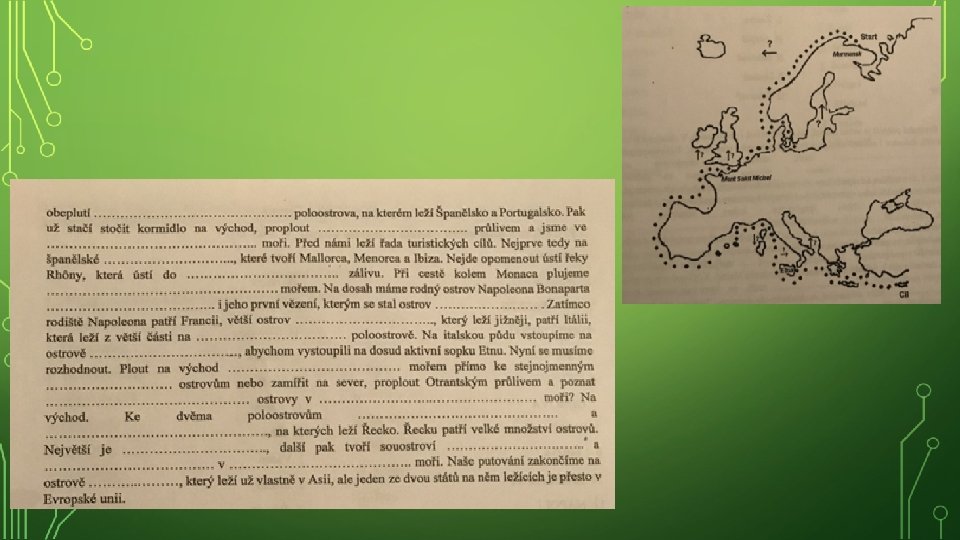 obeplutí ........................................ poloostrova, na kterém leží Španělsko a Portugalsko. Pak
už stačí stočit kormidlo na východ, proplout ................................ průlivem a jsme ve
........................................... moři. Před námi leží řada turistických cílů. Nejprve tedy na
španělské ............................, které tvoří Mallorca, Menorca a Ibiza. Nejde opomenout ústí řeky
Rhôny, která ústí do ................................ zálivu. Při cestě kolem Monaca plujeme
................................................ mořem. Na dosah máme rodný ostrov Napoleona Bonaparta
.................................... i jeho první vězení, kterým se stal ostrov ........................ Zatímco
rodiště Napoleona patří Francii, větší ostrov ............................., který leží jižněji, patří Itálii,
která leží z větší části na ................................ poloostrově. Na italskou půdu vstoupíme na
ostrově ................................, abychom vystoupili na dosud aktivní sopku Etnu. Nyní se musíme
rozhodnout. Plout na východ .................................... mořem přímo ke stejnojmenným
............................ ostrovům nebo zamířit na sever, proplout Otrantským průlivem a poznat
............................................ ostrovy v ................................................ moři? Na
východ. Ke dvěma poloostrovům ............................................ a
................................................, na kterých leží Řecko. Řecku patří velké množství ostrovů.
Největší je ................................, další pak tvoří souostroví ............................ a
.................................... v ........................................ moři. Naše putování zakončíme na
ostrově ....................., který leží už vlastně v Asii, ale jeden ze dvou států na něm ležících je přesto v
Evropské unii.
?
Start
Murmansk
?
?
?
Mont Saint Michel
Cíl